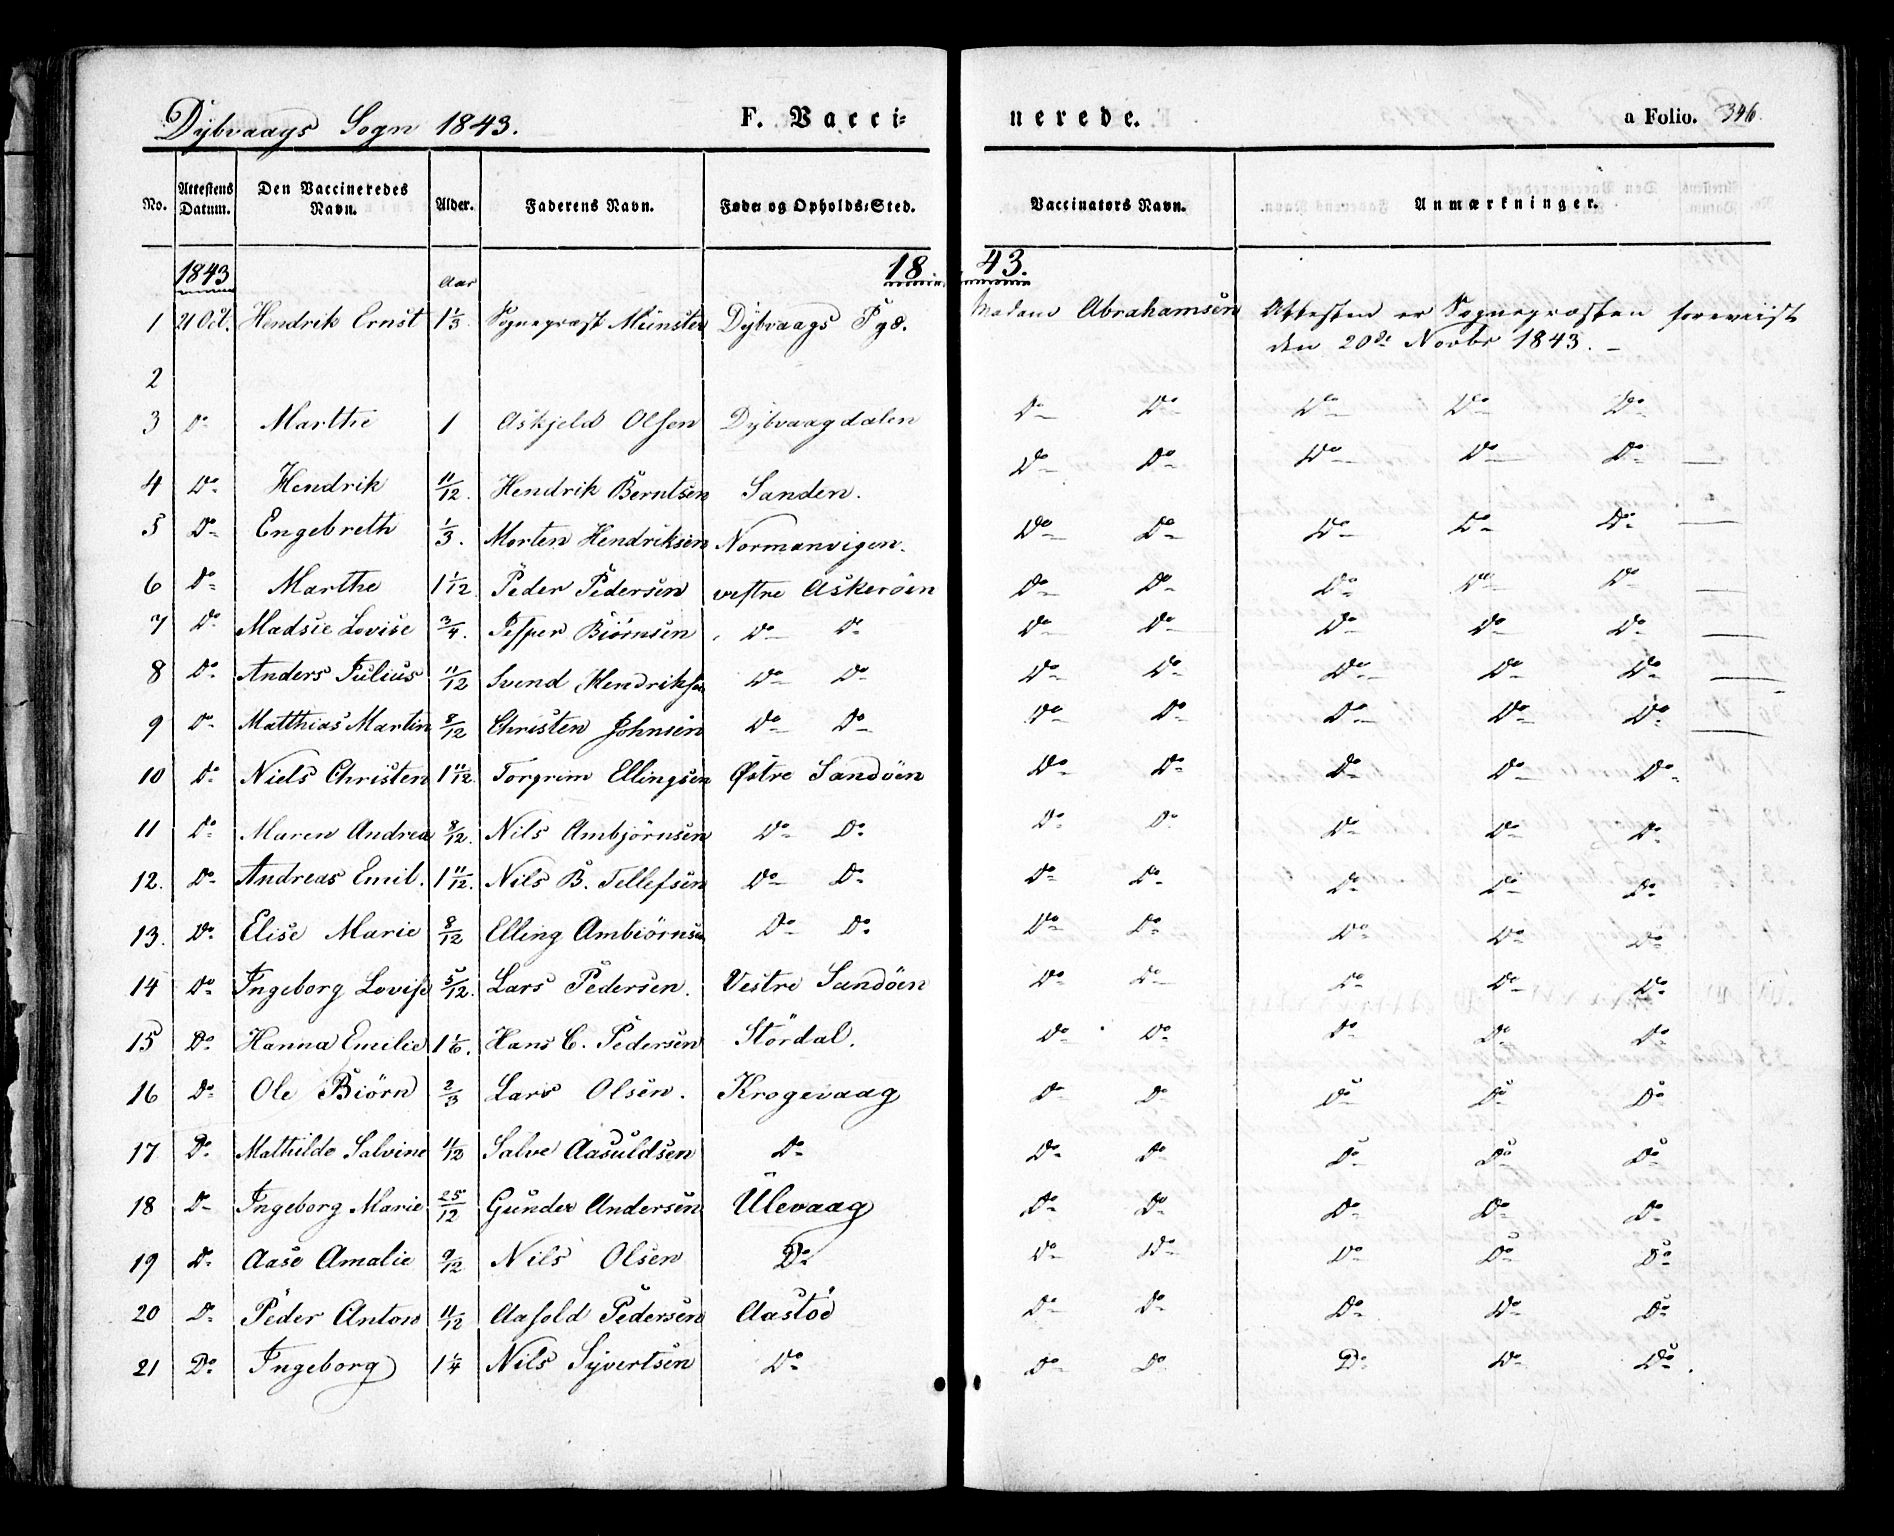 Dybvaags Sogn 1843. F. Vacci= nerede. a Folio. 346
No. Attestens Datum. Den Vaccineredes Navn. Alder. Faderens Navn. Føde= og Opholds=Sted. Vaccinators Navn. Anmærkninger.
1843 Aar 18 43.
1 21 Oct. Hendrik Ernst 1 1/3 Sognepræst Münster Dybvaags Pgd. Madam Abrahamsen Attesten er Sognepræsten foreviist
den 20de Novbr 1843. –
2
3 Do Marthe 1 Askjeld Olsen Dybvaagdalen Do Do Do Do Do
4 Do Hendrik 11/12 Hendrik Berntsen Sanden. Do Do Do Do Do
5 Do Engebreth 1/3. Morten Hendriksen Normanvigen. Do Do Do Do Do
6 Do Marthe 1 1/12 Peder Pedersen vestre Askerøen Do Do Do Do Do
7 Do Madsie Lovise 3/4. Jesper Biörnsen Do Do Do Do Do Do Do
8 Do Anders Julius 11/12 Svend Hendriksen Do Do Do Do Do Do Do
9 Do Matthias Martin 8/12 Christen Johnsen Do Do Do Do Do Do Do
10 Do Niels Christen 1 11/12 Torgrim Ellingsen Østre Sandöen Do Do Do Do Do
11 Do Maren Andrea 8/12. Nils Ambjörnsen Do Do Do Do Do Do Do
12. Do Andreas Emil. 1 11/12. Nils B. Tellefsen Do Do Do Do Do Do Do
13. Do Elise Marie 8/12 Elling Ambiörnsen Do Do Do Do Do Do Do
14 Do Ingeborg Lovise 5/12. Lars Pedersen. Vestre Sandöen Do Do Do Do Do
15 Do Hanna Emilie 1 1/6. Hans C. Pedersen Stördal. Do Do Do Do Do
16 Do Ole Biörn 2/3 Lars Olsen. Krogevaag Do Do Do Do Do
17 Do Mathilde Salvine 11/12 Salve Aasuldsen Do Do Do Do Do Do
18 Do Ingeborg Marie 25/12 Gunder Andersen Ulevaag Do Do Do Do Do
19 Do Aase Amalie 9/12 Nils Olsen Do Do Do Do Do Do
20 Do Peder Anton 11/12 Aasold Pedersen Aastö Do Do Do Do Do
21 Do Ingeborg 1 1/4 Nils Syvertsen Do Do Do Do Do Do.